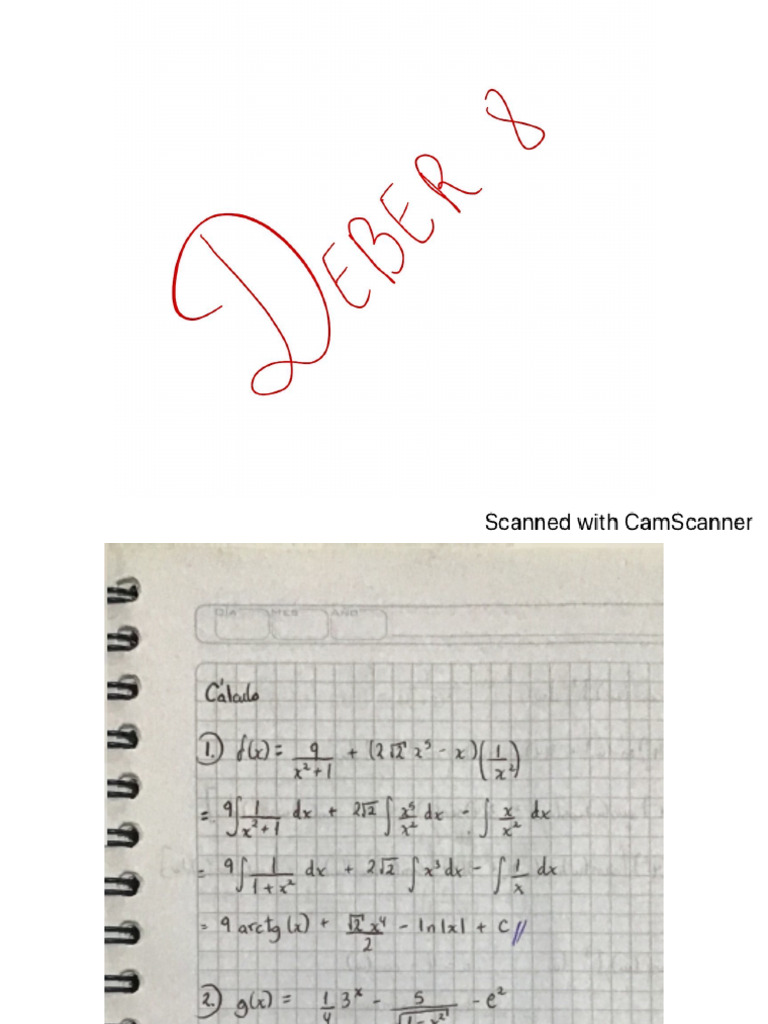 DEBER 8
Scanned with CamScanner
DIA MES AÑO
Cálculo
1. f(x) = 9/(x²+1) + (2√2 x⁵ - x)(1/x²)
= 9∫ 1/(x²+1) dx + 2√2 ∫ x⁵/x² dx - ∫ x/x² dx
= 9∫ 1/(1+x²) dx + 2√2 ∫ x³ dx - ∫ 1/x dx
= 9 arctg(x) + √2 x⁴/2 - ln|x| + C //
2. g(x) = 1/4 3ˣ - 5/√(1-x²) - e²